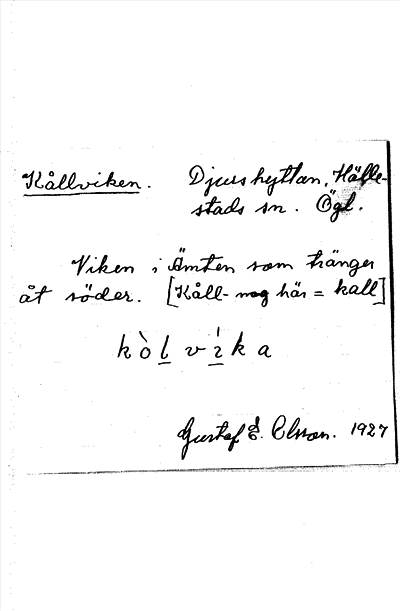 Kållviken. Djurshyttan, Hälle-
stads sn. Ögl.
Viken i Ämten som tränger
åt söder. [Kåll- nog här = kall]
kòl víka
Gustaf E. Olsson. 1927